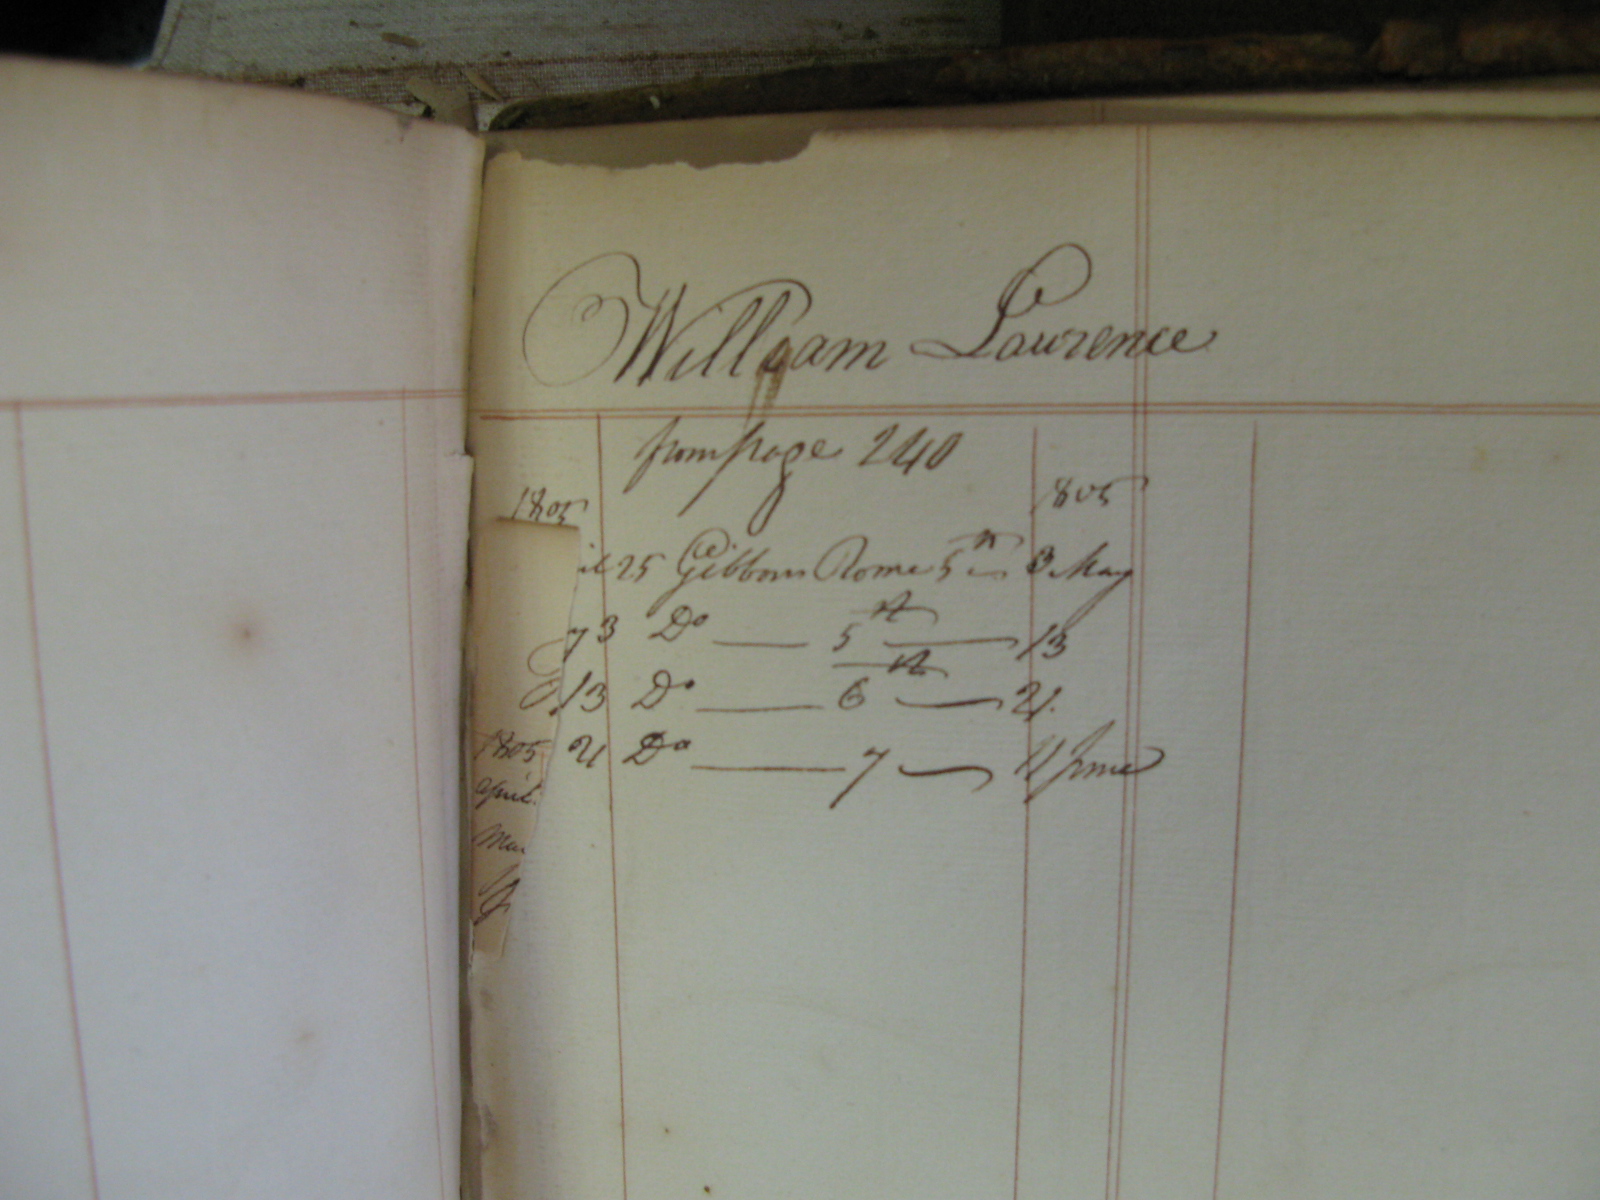 William Lawrence
from page 240
1805 1805
il 25 Gibbons Rome 5 3 May
y 3 Do 5 13
13 Do 6 21.
21 Do 7 June
1805
April